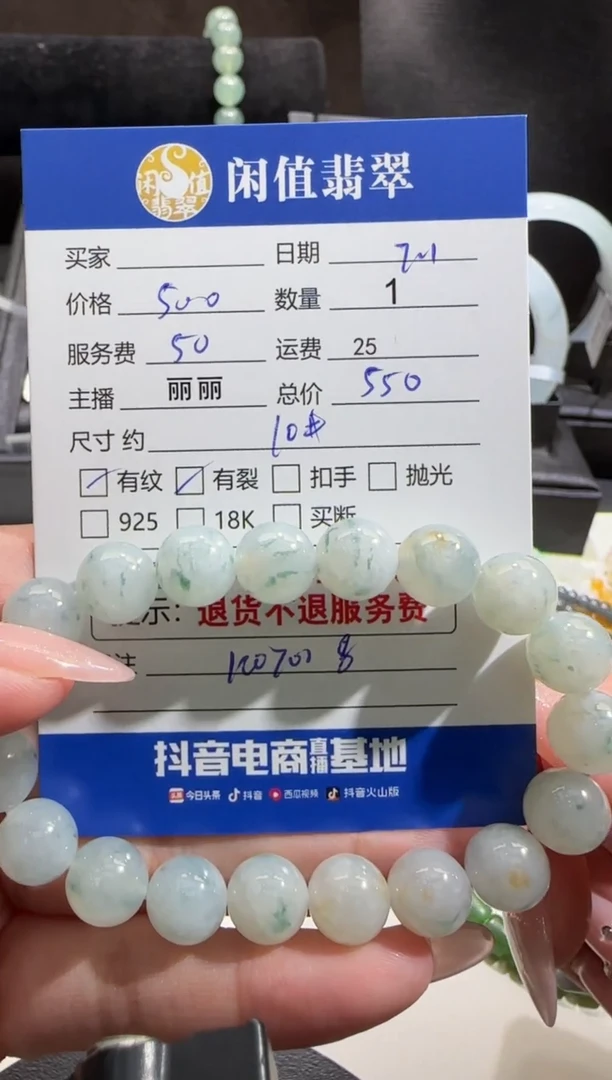 闲值翡翠 闲值翡翠
买家 日期 7.1
价格 500 数量 1
服务费 50 运费 25
主播 丽丽 总价 550
尺寸 约 10#
有纹 有裂 扣手 抛光
925 18K 买断
示：退货不退服务费
注
抖音电商直播基地
头条 今日头条 抖音 西瓜视频 抖音火山版